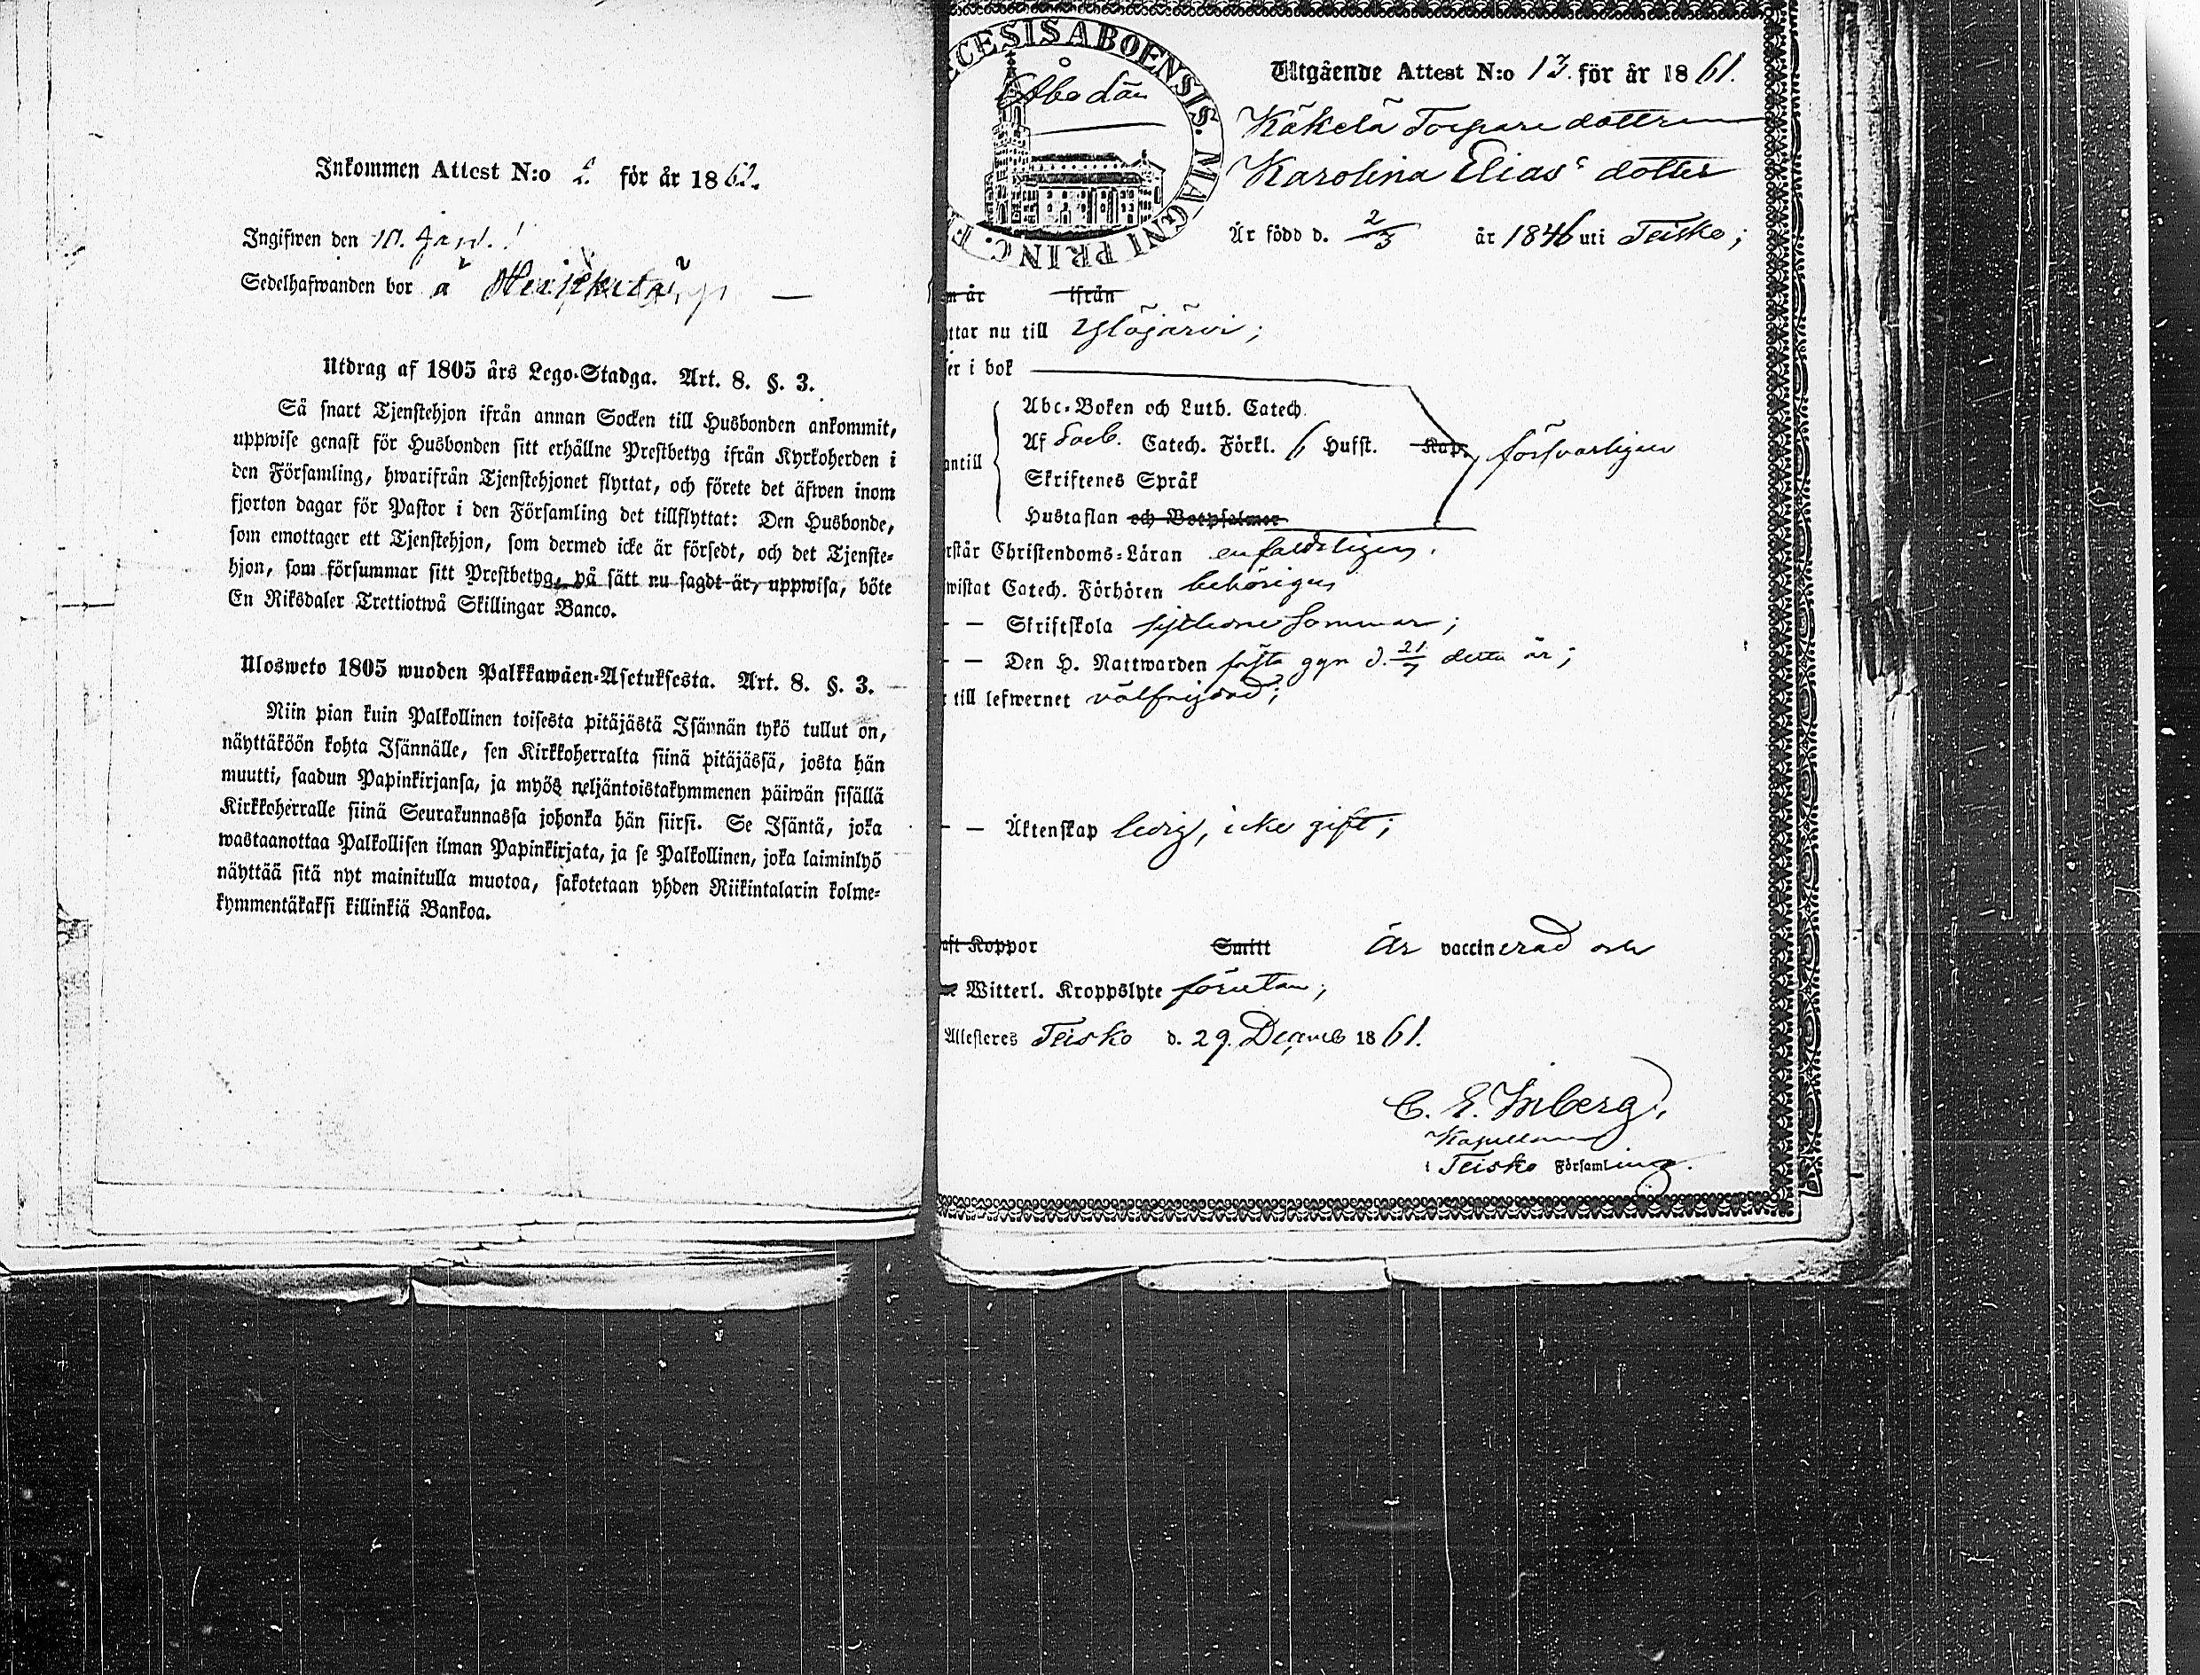 Inkommen Attest N:o 2. för år 1862.
Ingifwen den 10. Jan.
Sedelhafwanden bor å
Utdrag af 1805 års Lego-Stadga. Art. 8. §. 3.
Så snart Tjenstehjon ifrån annan Socken till Husbonden ankommit,
uppwise genast för Husbonden sitt erhållne Prestbetyg ifrån Kyrkoherden i
den Församling, hwarifrån Tjenstehjonet flyttat, och förete det äfwen inom
fjorton dagar för Pastor i den Församling det tillflyttat: Den Husbonde,
som emottager ett Tjenstehjon, som dermed icke är försedt, och det Tjenste-
hjon, som försummar sitt Prestbetyg, på sätt nu sagdt är, uppwisa, böte
En Riksdaler Trettiotwå Skillingar Banco.
Ulosweto 1805 wuoden Palkkawäen-Asetuksesta. Art. 8. §. 3.
Niin pian kuin Palkollinen toisesta pitäjästä Isännän tykö tullut on,
näyttäköön kohta Isännälle, sen Kirkkoherralta siinä pitäjässä, josta hän
muutti, saadun Papinkirjansa, ja myös neljäntoistakymmenen päiwän sisällä
Kirkkoherralle siinä Seurakunnassa johonka hän siirsi. Se Isäntä, joka
wastaanottaa Palkollisen ilman Papinkirjata, ja se Palkollinen, joka laiminlyö
näyttää sitä nyt mainitulla muotoa, sakotetaan yhden Riikintalarin kolme-
kymmentäkaksi killinkiä Bankoa.
ECESIS ABOENSIS. MAGNI PRINC. F
Åbo Län
Utgående Attest N:o 13. för år 1861.
Käkelä Torpare dottren
Karolina Elias dotter
Är född d. 2/3 år 1846 uti Teisko;
n år ifrån
ttar nu till Ylöjärvi;
er i bok
Abc-Boken och Luth. Catech.
Af Catech. Förkl. 6 Hufst. Kap. försvarligen
antill
Skriftenes Språk
Hustaflan och Botpsalmer
rstår Christendoms-Läran enfaldeligen.
wistat Catech. Förhören behörigen
- - Skriftskola sistledne Sommar;
- - Den H. Nattwarden första ggn d. 21/7 detta år;
till lefwernet välfrejdad;
- - Äktenskap ledig, icke gift;
aft Koppor Smitt är vaccinerad och
Witterl. Kroppslyte förutan;
Attesteres Teisko d. 29. Decemb 1861.
C. E. Inberg,
Kapellan
i Teisko Församling.